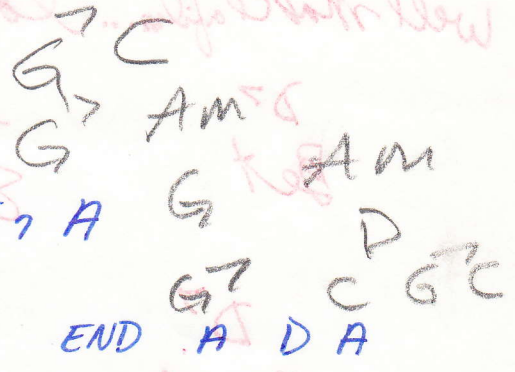 G7 C
G7 Am
Am
G
A
D
G7 C G7 C
END A D A